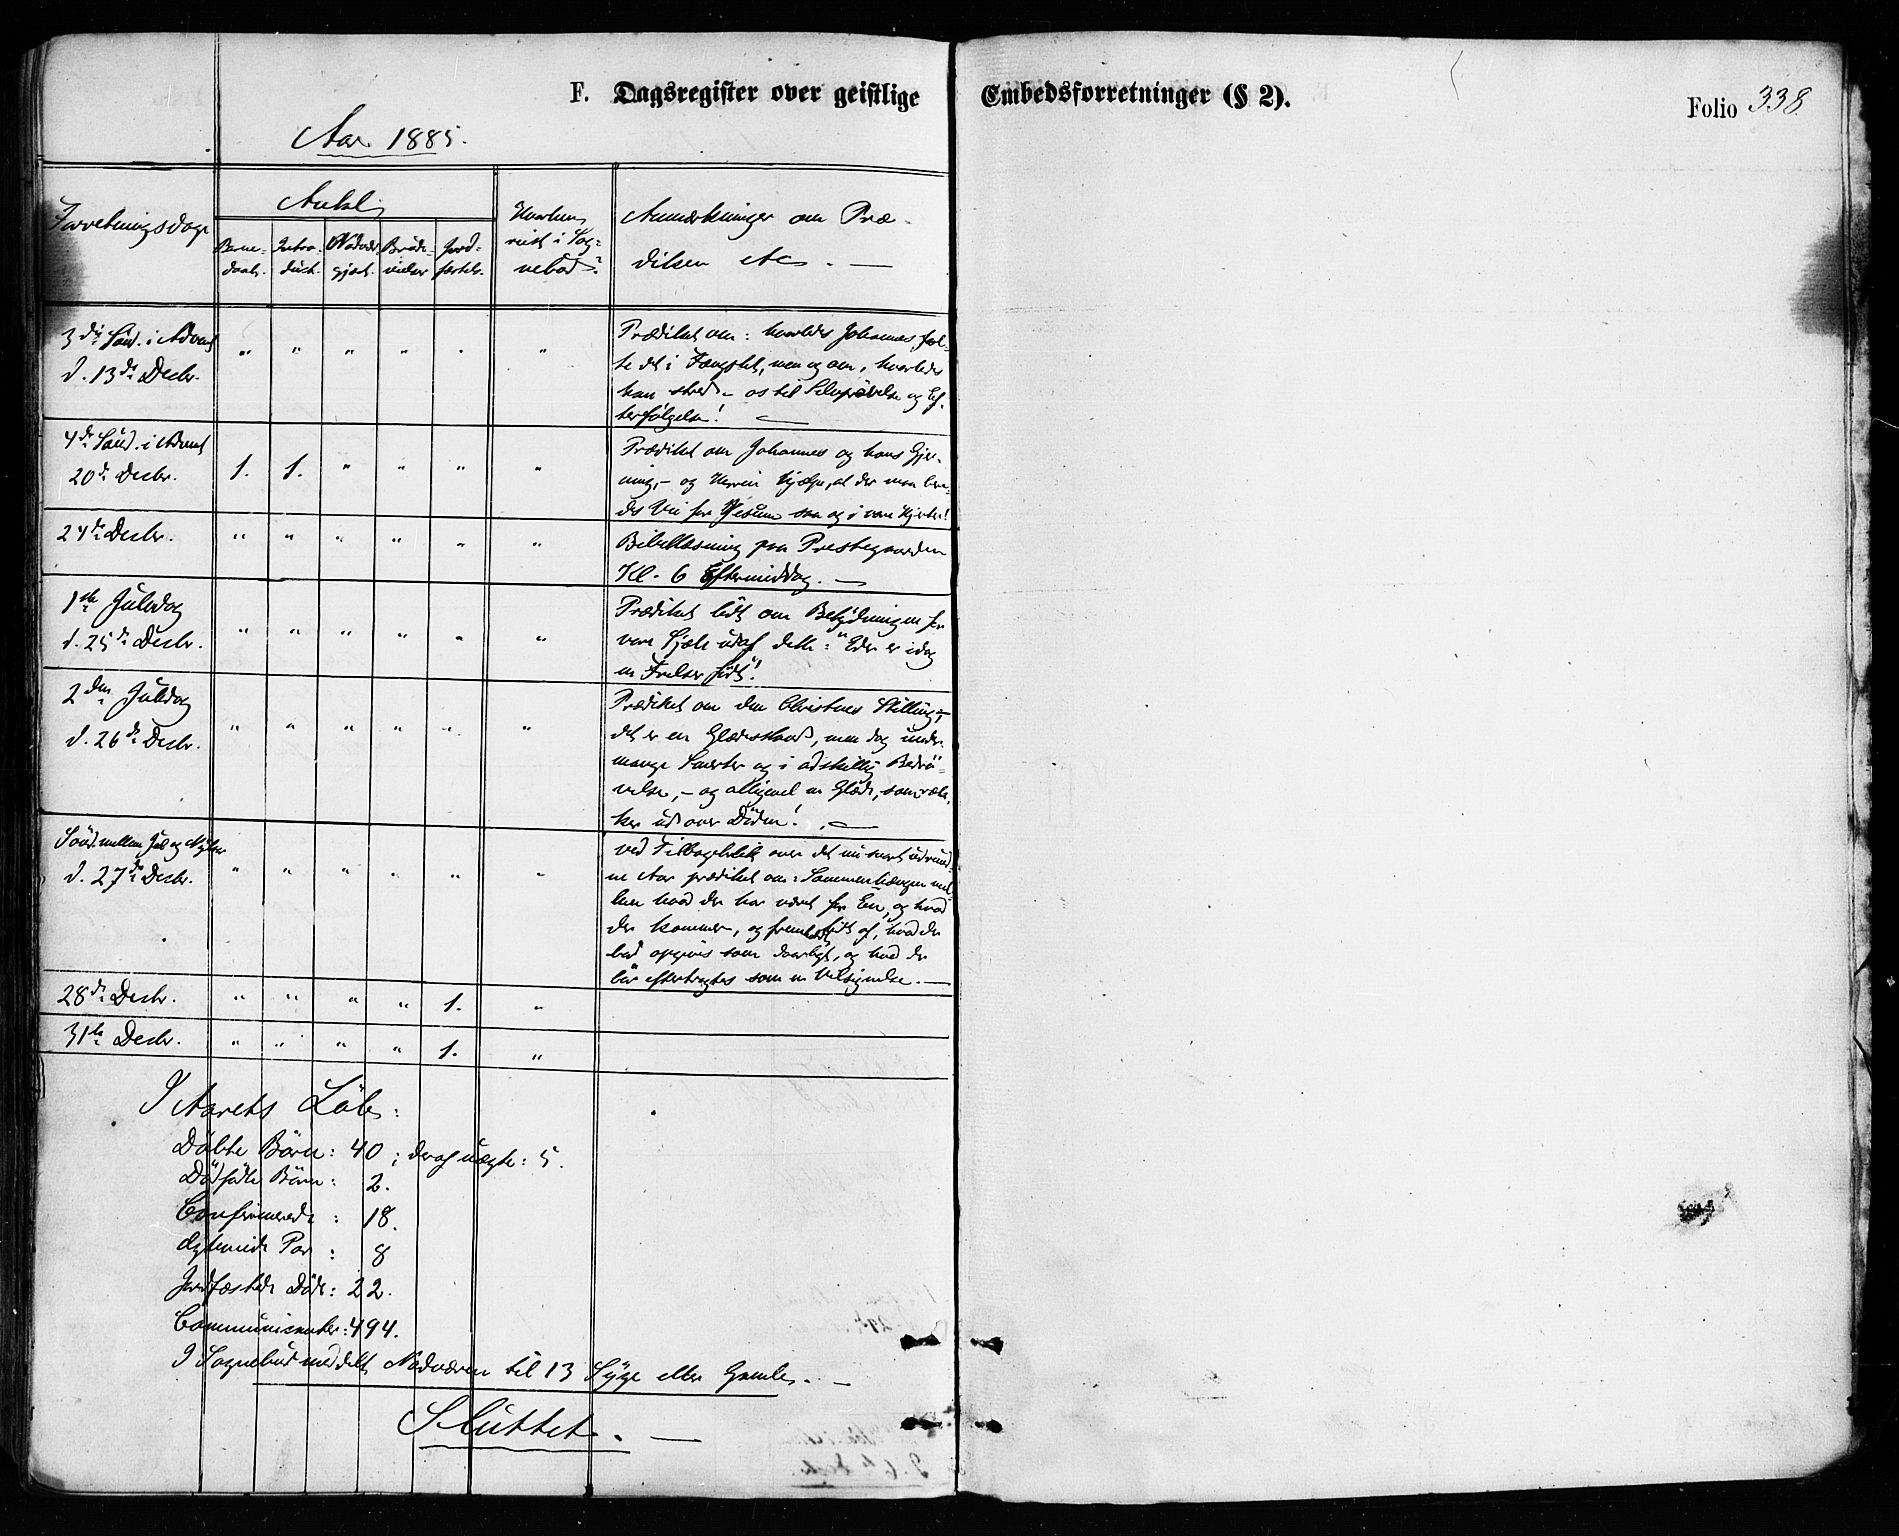 F. Dagsregister over geistlige Embedsforretninger (§ 2).
Folio 338.
Aar 1885.
Forretningsdage
Antal
Barne-
daab.
Intro-
duct.
Nadver
gjæst.
Brude-
vielser
Jord-
fæstels.
Hvorhen
reist i Sog-
nebud?
Anmærkninger om Præ-
diken etc. —
3die Sønd. i Advent
d. 13de Decbr.
" " " " " "
Prædiket om: hvorledes Johannes hol-
te det i Fængslet, men og om, hvorledes
han stred – os til Selvprøvelse og Ef-
terfølgelse! —
4de Sønd. i Advent
20de Decbr.
1. 1. " " " "
Prædiket om Johannes og hans Gjer-
ning, – og Herren hjælpe, at der maa bere-
des Vei for Jesum saa og i vore Hjerter!
24de Decbr.
" " " " " "
Bibellæsning paa Prestegaarden
Kl. 6 Eftermiddag. —
1ste Juledag
d. 25de Decbr.
" " " " " "
Prædiket lidt om Betydningen for
vore Sjæle udaf dette: "Eder er idag
en Frelser født!
2den Juledag
d. 26de Decbr.
" " " " " "
Prædiket om den Christnes Stilling, –
det er en Glædesstand, men dog under
mange Smerter og i adskillig Bedrø-
velse, – og alligevel en Glæde, som ræk-
ker ud over Døden! —
Sønd. mellem Jul og Nytaar
d. 27de Decbr.
" " " " " "
ved Tilbageblik over det nu snart udrund-
ne Aar prædiket om: Sammenhængen mel-
lem hvad der har været før En, og hvad
der kommer, og fremledt af, hvad der
bød opgives som daarligt, og hvad der
bør eftertragtes som en Velsignelse. —
28de Decbr.
" " " " 1. "
31te Decbr.
" " " " 1. "
I Aarets Løb:
Døbte Børn: 40; deraf uægte: 5.
Dødfødte Børn: 2.
Confirmerede: 18.
Ægteviede Par: 8
Jordfæstede Døde: 22.
Communicanter: 494.
I Sognebud meddelt Nadveren til 13 Syge eller Gamle. —
Sluttet. —